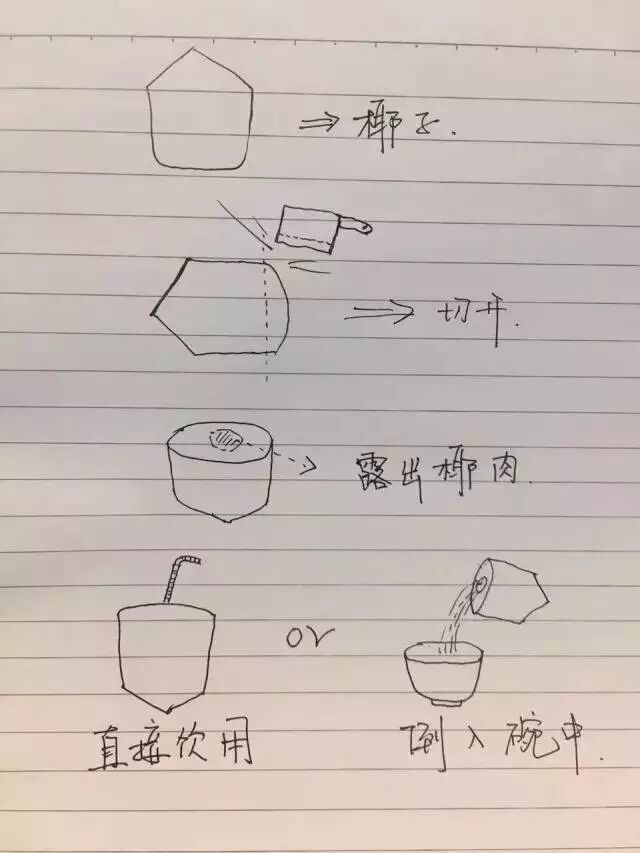 椰子.
切开.
露出椰肉.
or
直接饮用
倒入碗中.